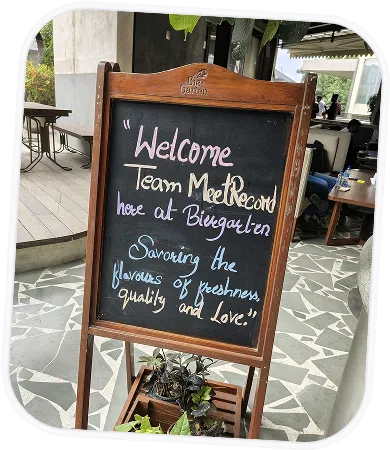 Big
Garten
"Welcome
Team MeetRecord
here at Biergarten
Savoring the
flavours of freshness,
quality and Love."